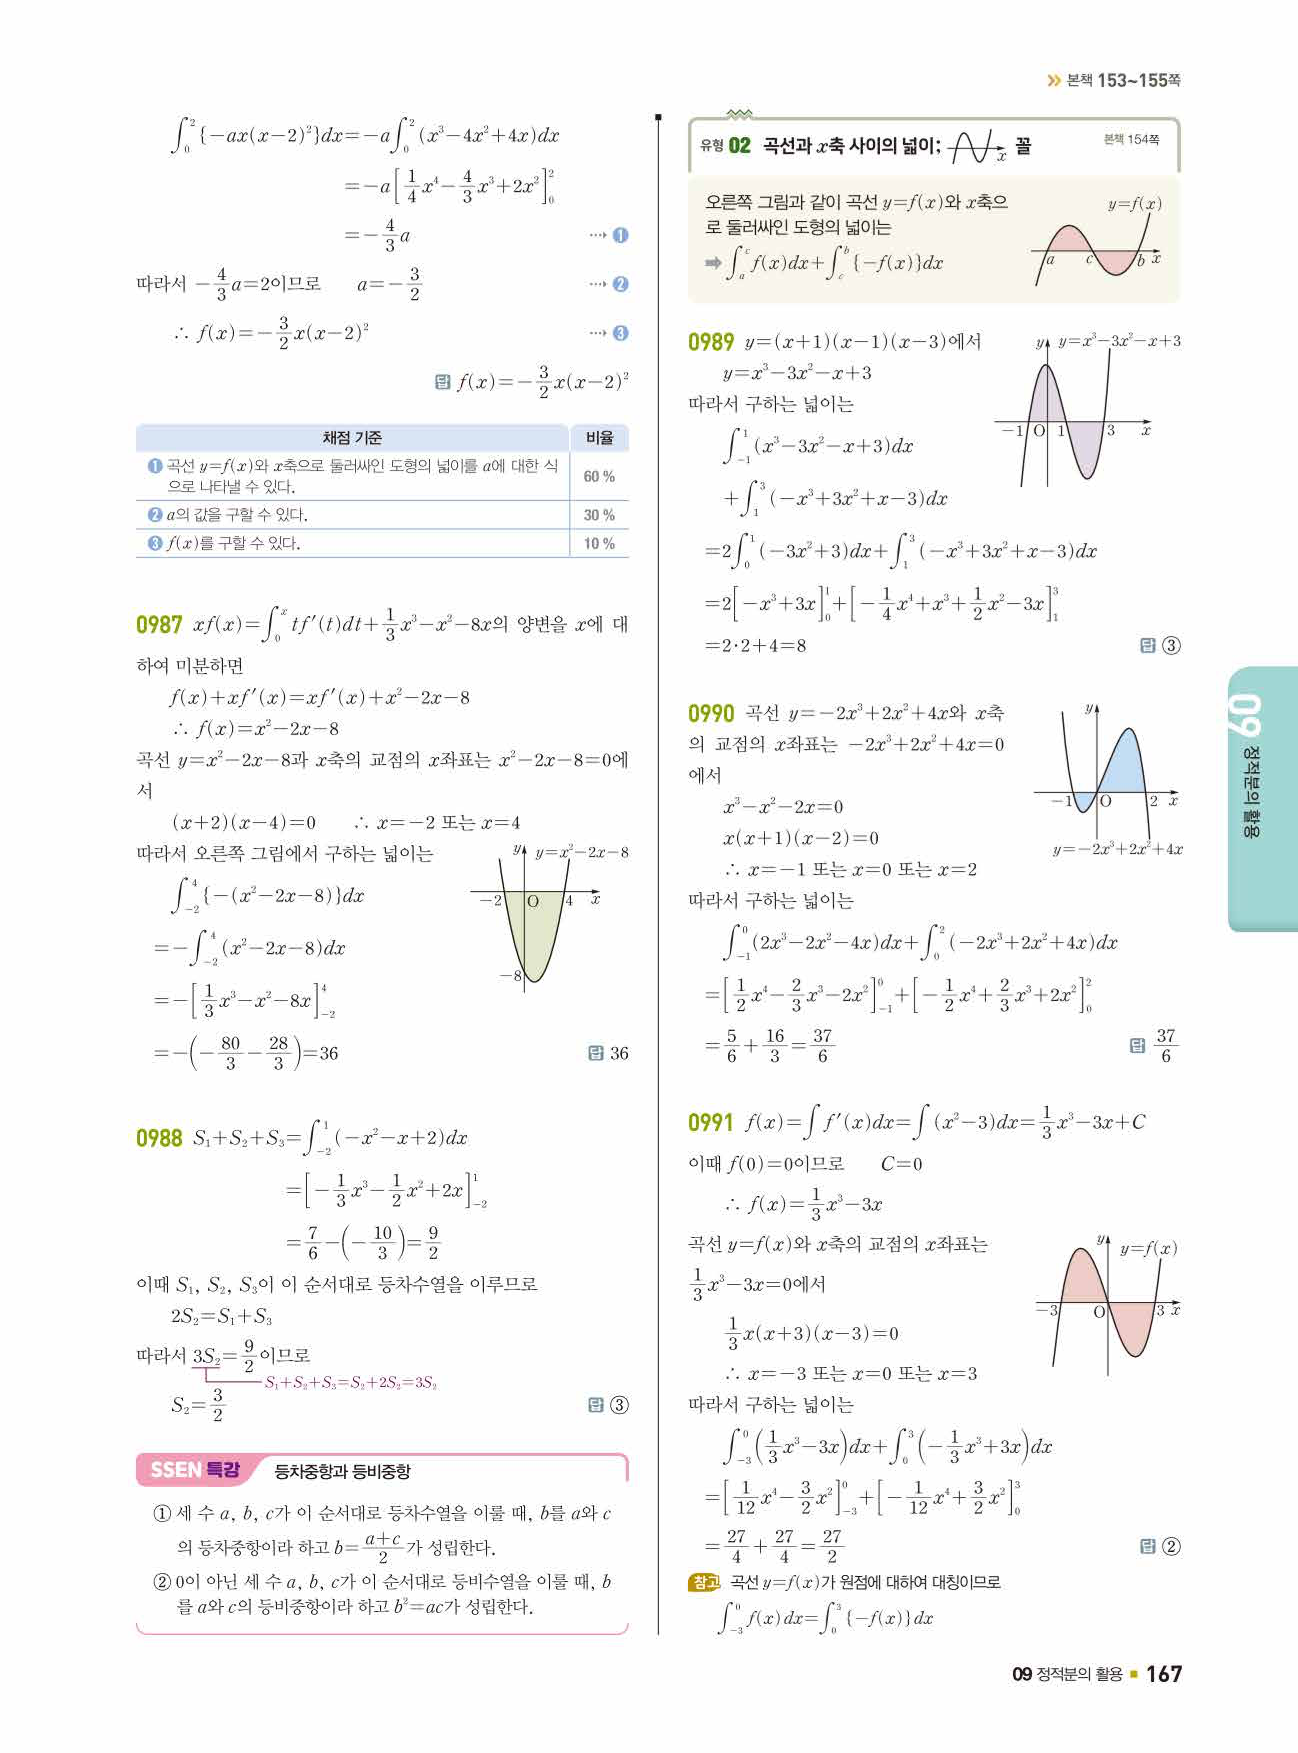 본책 153~155쪽
∫₀² {−ax(x−2)²}dx=−a∫₀² (x³−4x²+4x)dx
=−a[1/4 x⁴−4/3 x³+2x²]₀²
=−4/3 a ⋯→ ❶
따라서 −4/3 a=2이므로 a=−3/2 ⋯→ ❷
∴ f(x)=−3/2 x(x−2)² ⋯→ ❸
답 f(x)=−3/2 x(x−2)²
채점 기준 비율
❶ 곡선 y=f(x)와 x축으로 둘러싸인 도형의 넓이를 a에 대한 식
으로 나타낼 수 있다. 60 %
❷ a의 값을 구할 수 있다. 30 %
❸ f(x)를 구할 수 있다. 10 %
0987 xf(x)=∫₀ˣ tf′(t)dt+1/3 x³−x²−8x의 양변을 x에 대
하여 미분하면
f(x)+xf′(x)=xf′(x)+x²−2x−8
∴ f(x)=x²−2x−8
곡선 y=x²−2x−8과 x축의 교점의 x좌표는 x²−2x−8=0에
서
(x+2)(x−4)=0 ∴ x=−2 또는 x=4
따라서 오른쪽 그림에서 구하는 넓이는
∫₋₂⁴ {−(x²−2x−8)}dx
=−∫₋₂⁴ (x²−2x−8)dx
=−[1/3 x³−x²−8x]₋₂⁴
=−(−80/3−28/3)=36
답 36
y y=x²−2x−8
−2 O 4 x
−8
0988 S₁+S₂+S₃=∫₋₂¹ (−x²−x+2)dx
=[−1/3 x³−1/2 x²+2x]₋₂¹
=7/6−(−10/3)=9/2
이때 S₁, S₂, S₃이 이 순서대로 등차수열을 이루므로
2S₂=S₁+S₃
따라서 3S₂=9/2이므로
S₁+S₂+S₃=S₂+2S₂=3S₂
S₂=3/2
답 ③
SSEN 특강 등차중항과 등비중항
① 세 수 a, b, c가 이 순서대로 등차수열을 이룰 때, b를 a와 c
의 등차중항이라 하고 b=(a+c)/2가 성립한다.
② 0이 아닌 세 수 a, b, c가 이 순서대로 등비수열을 이룰 때, b
를 a와 c의 등비중항이라 하고 b²=ac가 성립한다.
유형 02 곡선과 x축 사이의 넓이; x 꼴 본책 154쪽
오른쪽 그림과 같이 곡선 y=f(x)와 x축으
로 둘러싸인 도형의 넓이는
➡ ∫ₐᶜ f(x)dx+∫꜀ᵇ {−f(x)}dx
y=f(x)
a c b x
0989 y=(x+1)(x−1)(x−3)에서
y=x³−3x²−x+3
따라서 구하는 넓이는
∫₋₁¹ (x³−3x²−x+3)dx
+∫₁³ (−x³+3x²+x−3)dx
=2∫₀¹ (−3x²+3)dx+∫₁³ (−x³+3x²+x−3)dx
=2[−x³+3x]₀¹+[−1/4 x⁴+x³+1/2 x²−3x]₁³
=2·2+4=8
답 ③
y y=x³−3x²−x+3
−1 O 1 3 x
0990 곡선 y=−2x³+2x²+4x와 x축
의 교점의 x좌표는 −2x³+2x²+4x=0
에서
x³−x²−2x=0
x(x+1)(x−2)=0
∴ x=−1 또는 x=0 또는 x=2
따라서 구하는 넓이는
∫₋₁⁰ (2x³−2x²−4x)dx+∫₀² (−2x³+2x²+4x)dx
=[1/2 x⁴−2/3 x³−2x²]₋₁⁰+[−1/2 x⁴+2/3 x³+2x²]₀²
=5/6+16/3=37/6
답 37/6
y
−1 O 2 x
y=−2x³+2x²+4x
0991 f(x)=∫ f′(x)dx=∫ (x²−3)dx=1/3 x³−3x+C
이때 f(0)=0이므로 C=0
∴ f(x)=1/3 x³−3x
곡선 y=f(x)와 x축의 교점의 x좌표는
1/3 x³−3x=0에서
1/3 x(x+3)(x−3)=0
∴ x=−3 또는 x=0 또는 x=3
따라서 구하는 넓이는
∫₋₃⁰ (1/3 x³−3x)dx+∫₀³ (−1/3 x³+3x)dx
=[1/12 x⁴−3/2 x²]₋₃⁰+[−1/12 x⁴+3/2 x²]₀³
=27/4+27/4=27/2
답 ②
y y=f(x)
−3 O 3 x
참고 곡선 y=f(x)가 원점에 대하여 대칭이므로
∫₋₃⁰ f(x)dx=∫₀³ {−f(x)}dx
09 정적분의 활용
09 정적분의 활용 167